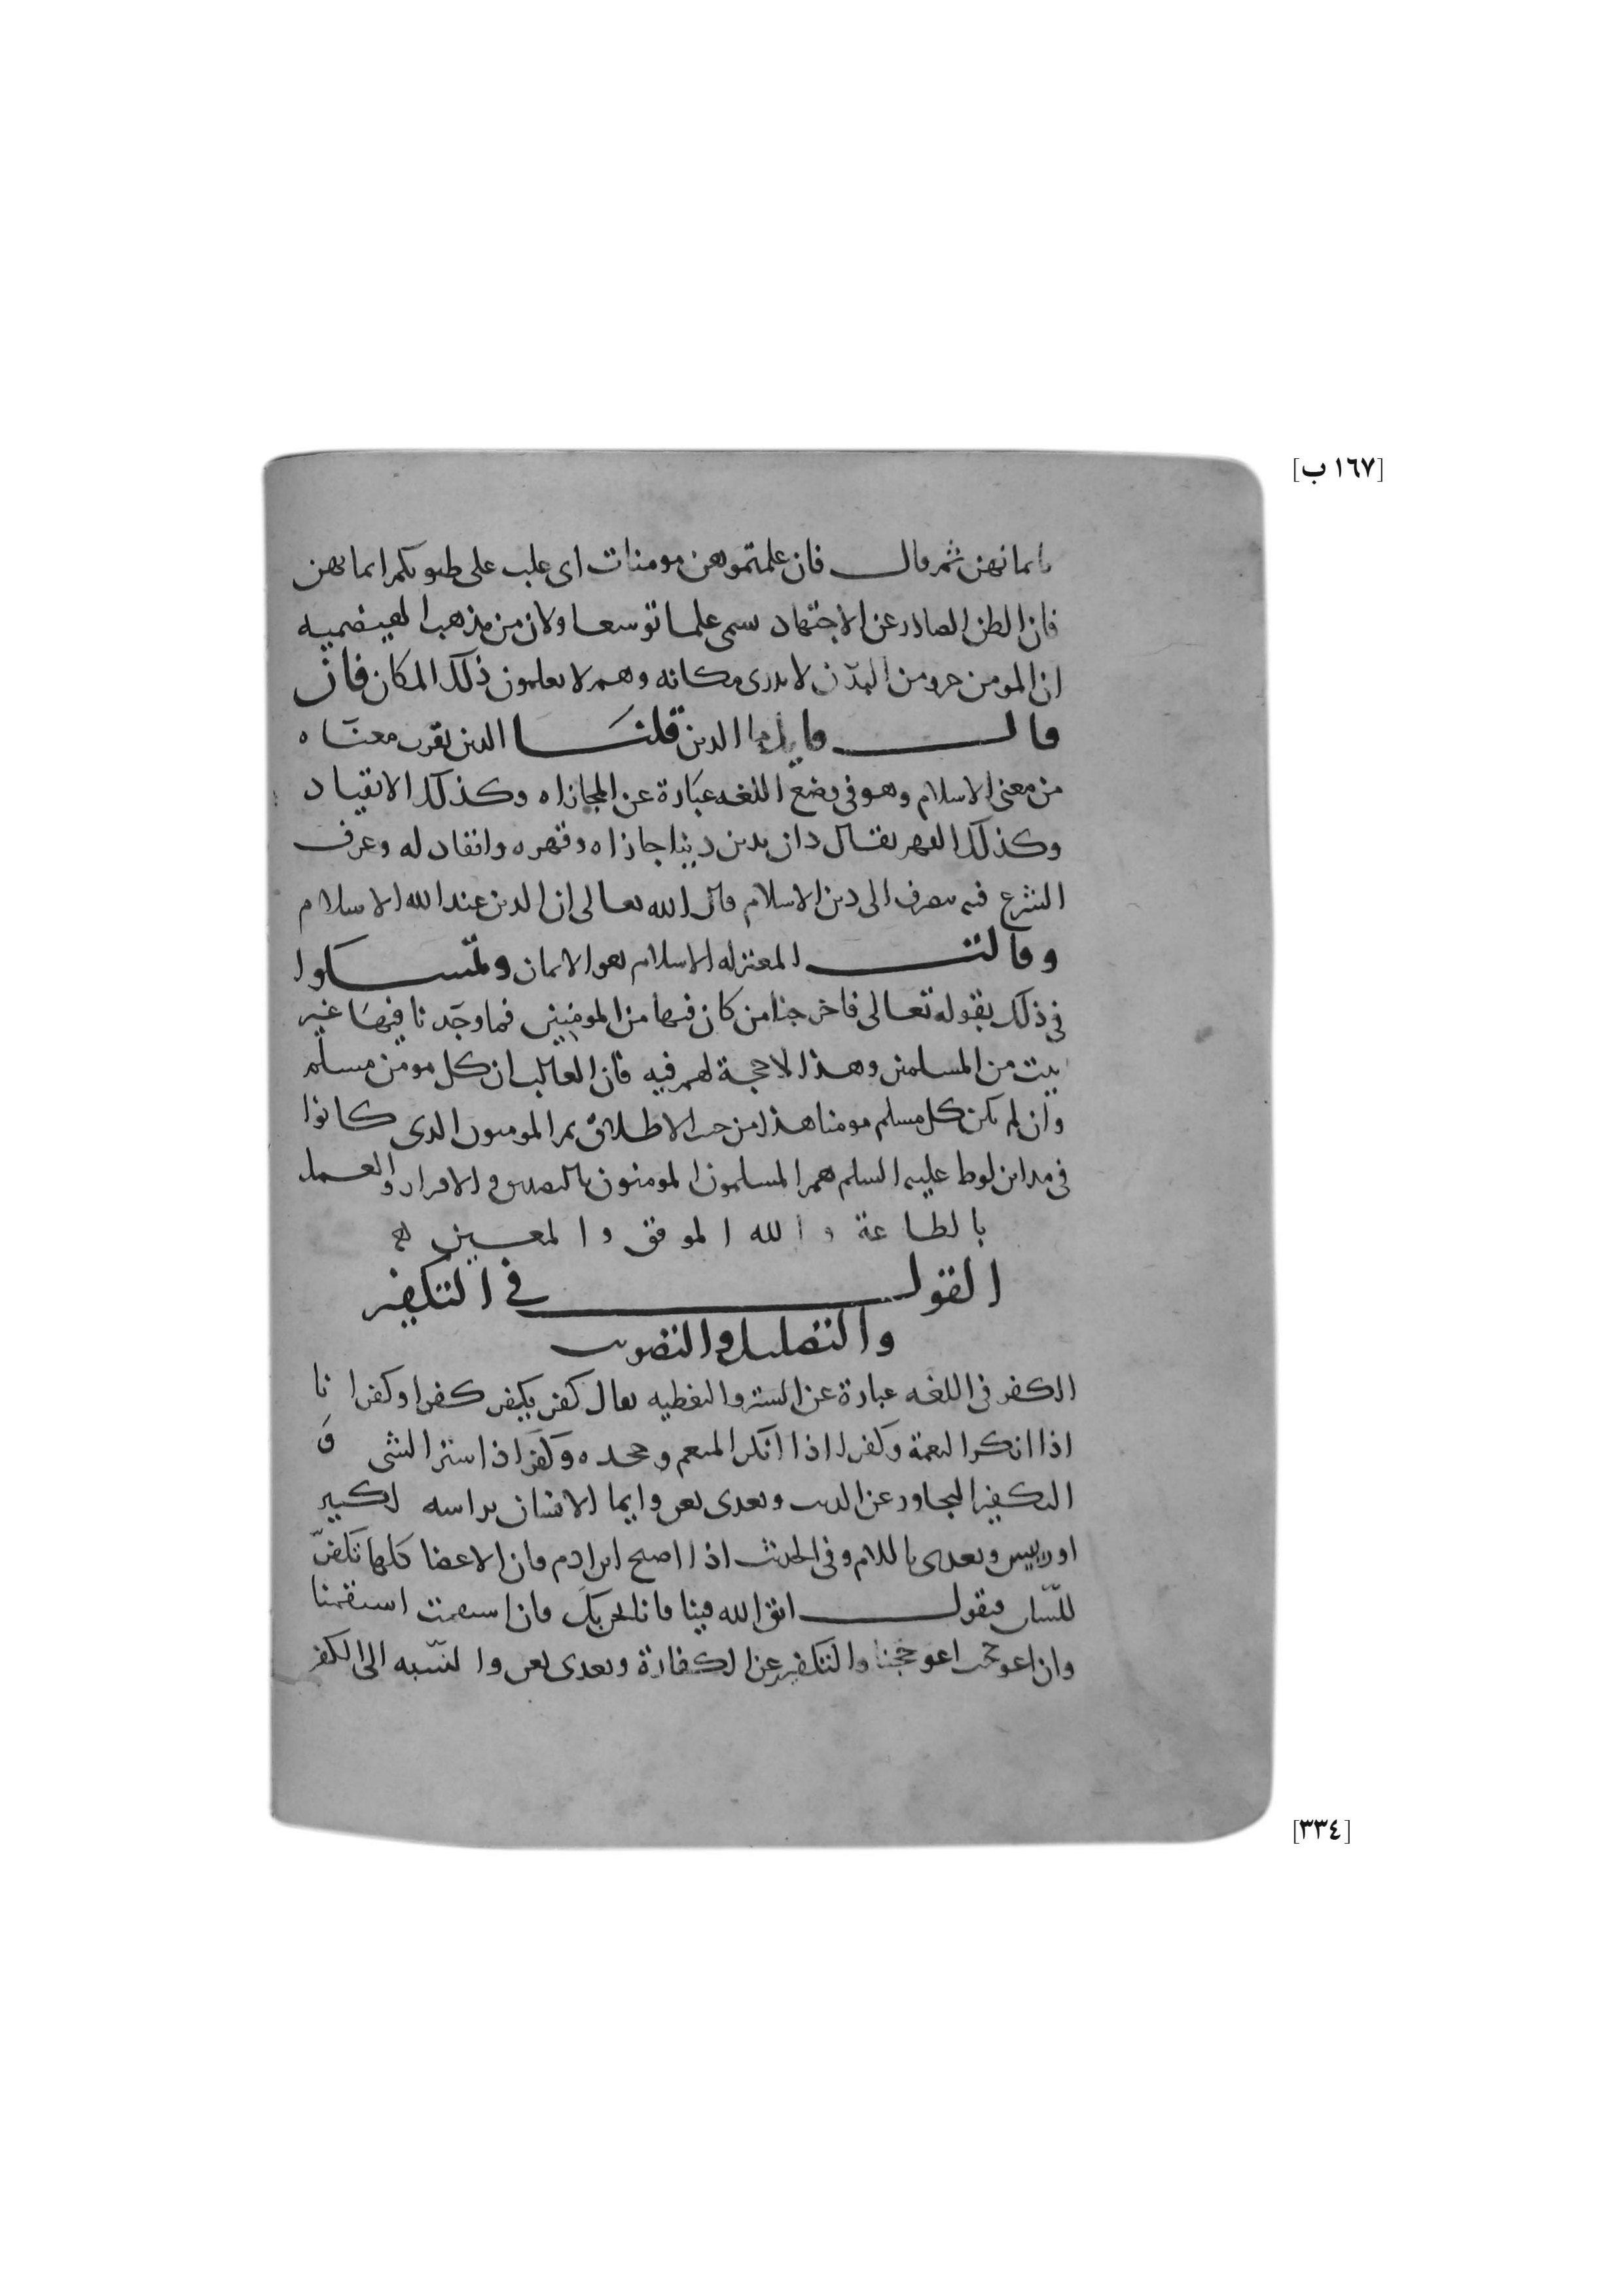 [١٦٧ ب]
بايمانهن ثم قال فان علمتموهن مومنات اى غلب على ظنونكم ايمانهن
فان الظن الصادر عن الاجتهاد سمى علما توسعا ولان من مذهب
ان المومن جزو من البدن لا يدرى مكانه وهم لا يعلمون ذلك المكان فان
قال وما الدين قلنا الدين يقرب معناه
من معنى الاسلام وهو فى وضع اللغه عبارة عن المجازاه وكذلك الانقياد
وكذلك القهر يقال دان يدين دينا جازاه وقهره وانقاد له وعرف
الشرع فيه يصرف الى دين الاسلام قال الله تعالى ان الدين عند الله الاسلام
وقالت المعتزله الاسلام هو الايمان وتمسكوا
فى ذلك بقوله تعالى فاخرجنا من كان فيها من المومنين فما وجدنا فيها غير
بيت من المسلمين وهذا لا حجة لهم فيه فان الغالب ان كل مومن مسلم
وان لم يكن كل مسلم مومنا هذا من حيث الاطلاق ثم المومنون الذى كانوا
فى مداين لوط عليه السلم هم المسلمون المومنون بالتصديق والاقرار والعمل
بالطاعة والله الموفق والمعين
القول فى التكفير
والتضليل والتصويب
الكفر فى اللغه عبارة عن الستر والتغطيه يقال كفر يكفر كفرا وكفرانا
اذا انكر النعمة وكفرا اذا انكر المنعم وجحده وكفر اذا ستر الشى و
التكفير التجاوز عن الذنب وتعدى بعن وايما الانسان براسه لكبير
او رييس وتعدى باللام وفى الحديث اذا اصبح ابن ادم فان الاعضا كلها تكفر
للسان فيقول اتق الله فينا فانا نحن بك فان استقمت استقمنا
وان اعوججت اعوججنا والتكفير عن الكفارة وتعدى بعن والنسبه الى الكفر
[٣٣٤]